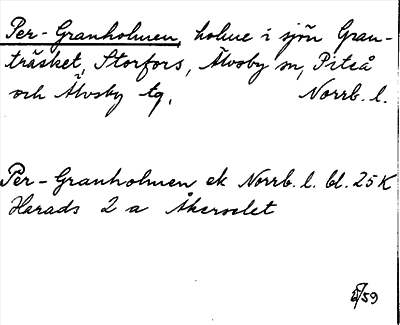 Per-Granholmen, holme i sjön Gran-
träsket, Storfors, Älvsby sn, Piteå
och Älvsby tg. Norrb. l.
Per-Granholmen ek Norrb. l. bl. 25 K
Harads 2 a Åkerselet
/59